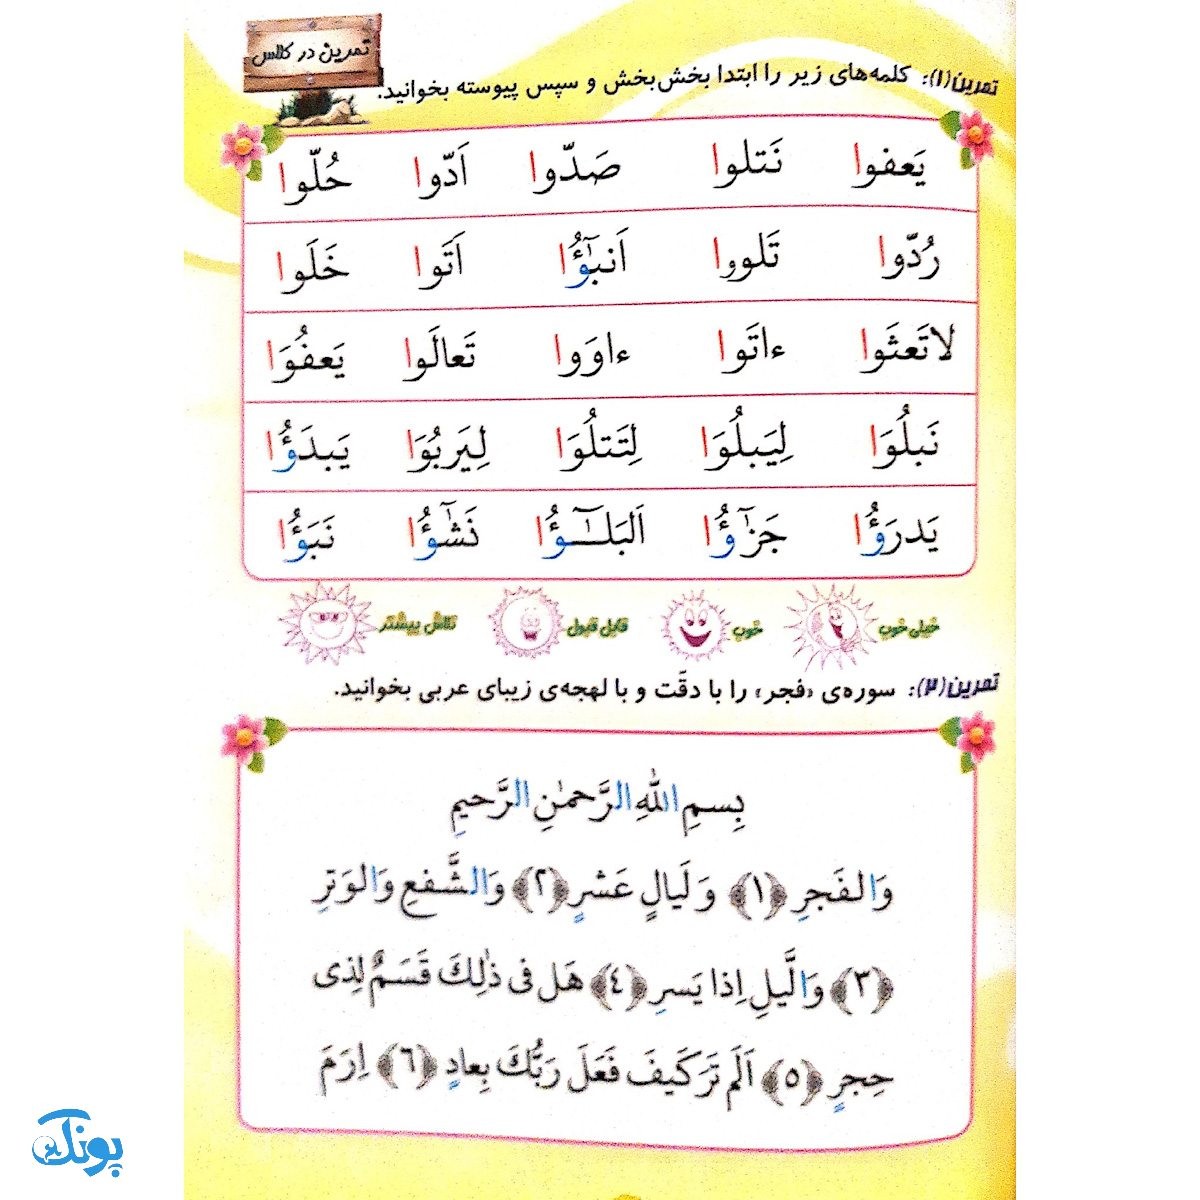 تمرین در کلاس
تمرین(۱): کلمه‌های زیر را ابتدا بخش‌بخش و سپس پیوسته بخوانید.
یَعفوا نَتلوا صَدّوا اَدّوا حُلّوا
رُدّوا تَلووا اَنبـٰٓؤُا اَتَوا خَلَوا
لاتَعثَوا ءاتَوا ءاوَوا تَعالَوا یَعفُوَا
نَبلُوَا لِیَبلُوَا لِتَتلُوَا لِیَربُوَا یَبدَؤُا
یَدرَؤُا جَزٰٓؤُا اَلبَلـٰٓـؤُا نَشٰٓؤُا نَبَؤُا
خیلی خوب خوب قابل قبول تلاش بیشتر
تمرین(۲): سوره‌ی «فجر» را با دقّت و با لهجه‌ی زیبای عربی بخوانید.
بِسمِ اللّٰهِ الرَّحمٰنِ الرَّحیمِ
وَالفَجرِ ﴿۱﴾ وَ لَیالٍ عَشرٍ ﴿۲﴾ وَالشَّفعِ وَالوَترِ
﴿۳﴾ وَالَّیلِ اِذا یَسرِ ﴿٤﴾ هَل فی ذٰلِكَ قَسَمٌ لِذی
حِجرٍ ﴿۵﴾ اَلَم تَرَ کَیفَ فَعَلَ رَبُّكَ بِعادٍ ﴿٦﴾ اِرَمَ
پونک